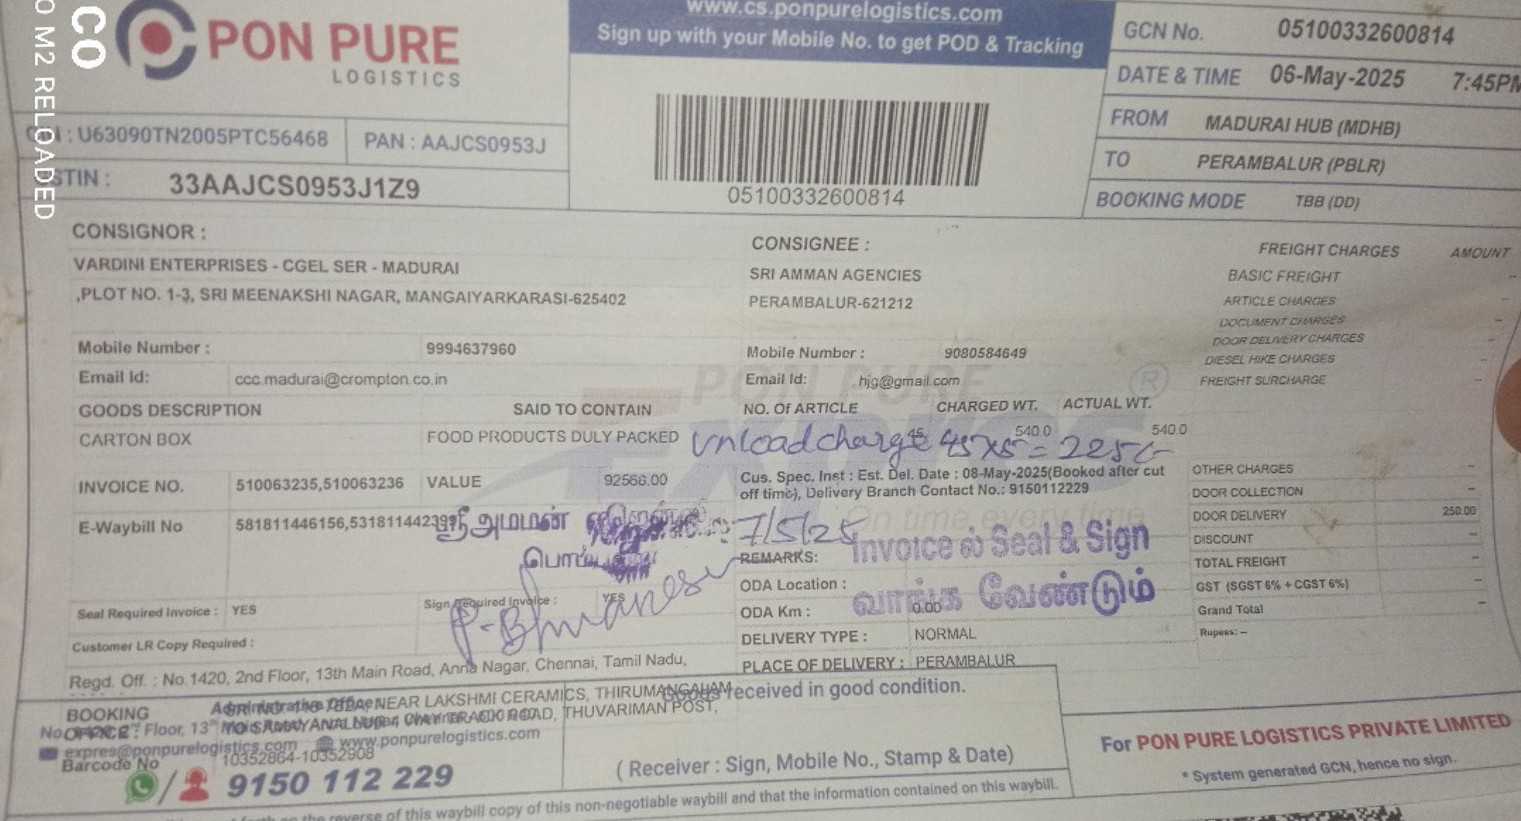 CO
O M2 RELOADED
PON PURE
LOGISTICS
www.cs.ponpurelogistics.com
Sign up with your Mobile No. to get POD & Tracking
05100332600814
GCN No. 05100332600814
DATE & TIME 06-May-2025 7:45PM
FROM MADURAI HUB (MDHB)
TO PERAMBALUR (PBLR)
BOOKING MODE TBB (DD)
: U63090TN2005PTC56468 PAN : AAJCS0953J
STIN : 33AAJCS0953J1Z9
CONSIGNOR :
VARDINI ENTERPRISES - CGEL SER - MADURAI
,PLOT NO. 1-3, SRI MEENAKSHI NAGAR, MANGAIYARKARASI-625402
Mobile Number : 9994637960
Email Id: ccc.madurai@crompton.co.in
CONSIGNEE :
SRI AMMAN AGENCIES
PERAMBALUR-621212
Mobile Number : 9080584649
Email Id: hjg@gmail.com
FREIGHT CHARGES AMOUNT
BASIC FREIGHT --
ARTICLE CHARGES
DOCUMENT CHARGES --
DOOR DELIVERY CHARGES
DIESEL HIKE CHARGES --
FREIGHT SURCHARGE --
PON PURE
GOODS DESCRIPTION SAID TO CONTAIN NO. Of ARTICLE CHARGED WT. ACTUAL WT.
CARTON BOX FOOD PRODUCTS DULY PACKED 45 540.0 540.0
Unload charge 45x5 = 225/-
INVOICE NO. 510063235,510063236 VALUE 92566.00
Cus. Spec. Inst : Est. Del. Date : 08-May-2025(Booked after cut
off time), Delivery Branch Contact No.: 9150112229
On time every time
E-Waybill No 581811446156,531811442399
ஸ்ரீ அம்மன்
7/5/25
Invoice ல் Seal & Sign
வாங்க வேண்டும்
REMARKS:
ODA Location :
ODA Km : 0.00
DELIVERY TYPE : NORMAL
PLACE OF DELIVERY : PERAMBALUR
Seal Required Invoice : YES Sign Required Invoice : YES
Customer LR Copy Required :
OTHER CHARGES --
DOOR COLLECTION --
DOOR DELIVERY 250.00
DISCOUNT --
TOTAL FREIGHT --
GST (SGST 6% + CGST 6%) --
Grand Total --
Rupees: --
Regd. Off. : No.1420, 2nd Floor, 13th Main Road, Anna Nagar, Chennai, Tamil Nadu,
BOOKING
OFFICE :
NEAR LAKSHMI CERAMICS, THIRUMANGALAM
TO SAMAYANALLUR 4 WAY TRACK ROAD, THUVARIMAN POST,
Administrative Office
expres@ponpurelogistics.com www.ponpurelogistics.com
Barcode No 10352864-10352908
9150 112 229
Goods received in good condition.
( Receiver : Sign, Mobile No., Stamp & Date)
For PON PURE LOGISTICS PRIVATE LIMITED
* System generated GCN, hence no sign.
reverse of this waybill copy of this non-negotiable waybill and that the information contained on this waybill.